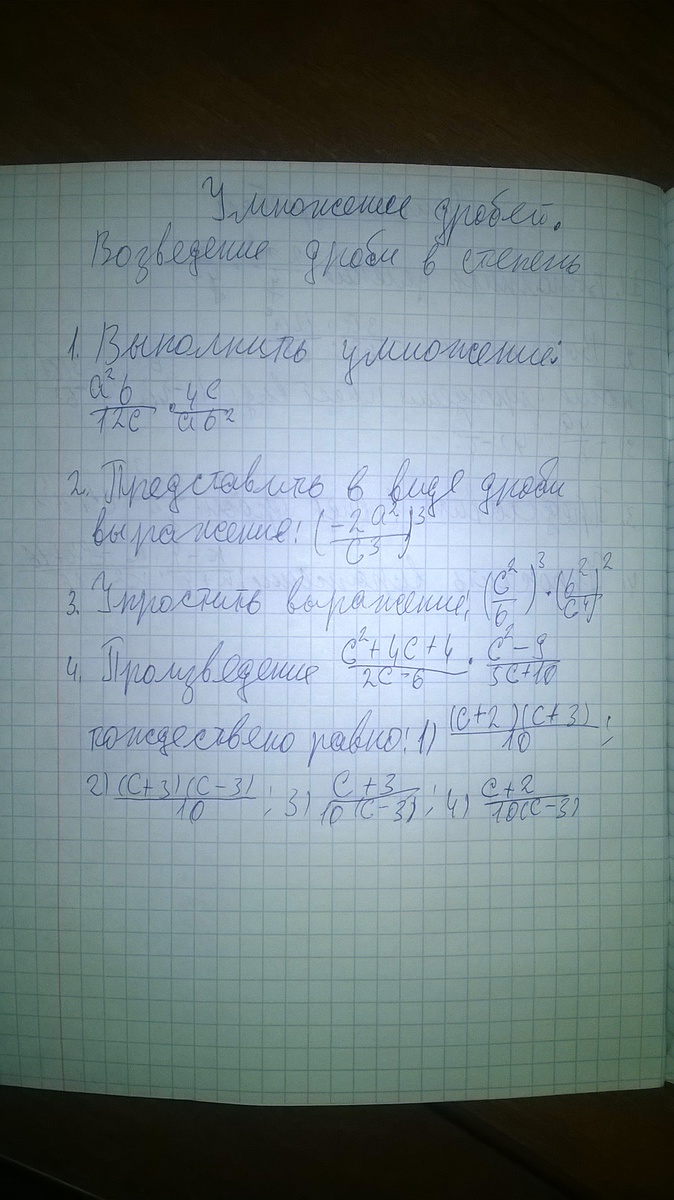 Умножение дробей.
Возведение дроби в степень
1. Выполнить умножение:
a²b/12c · 4c/ab²
2. Представить в виде дроби
выражение: (-2a²/c³)³
3. Упростить выражение: (c²/b)³ · (b²/c⁴)²
4. Произведение c²+4c+4/2c-6 · c²-9/5c+10
тождествено равно: 1) (c+2)(c+3)/10;
2) (c+3)(c-3)/10; 3) c+3/10(c-3); 4) c+2/10(c-3)